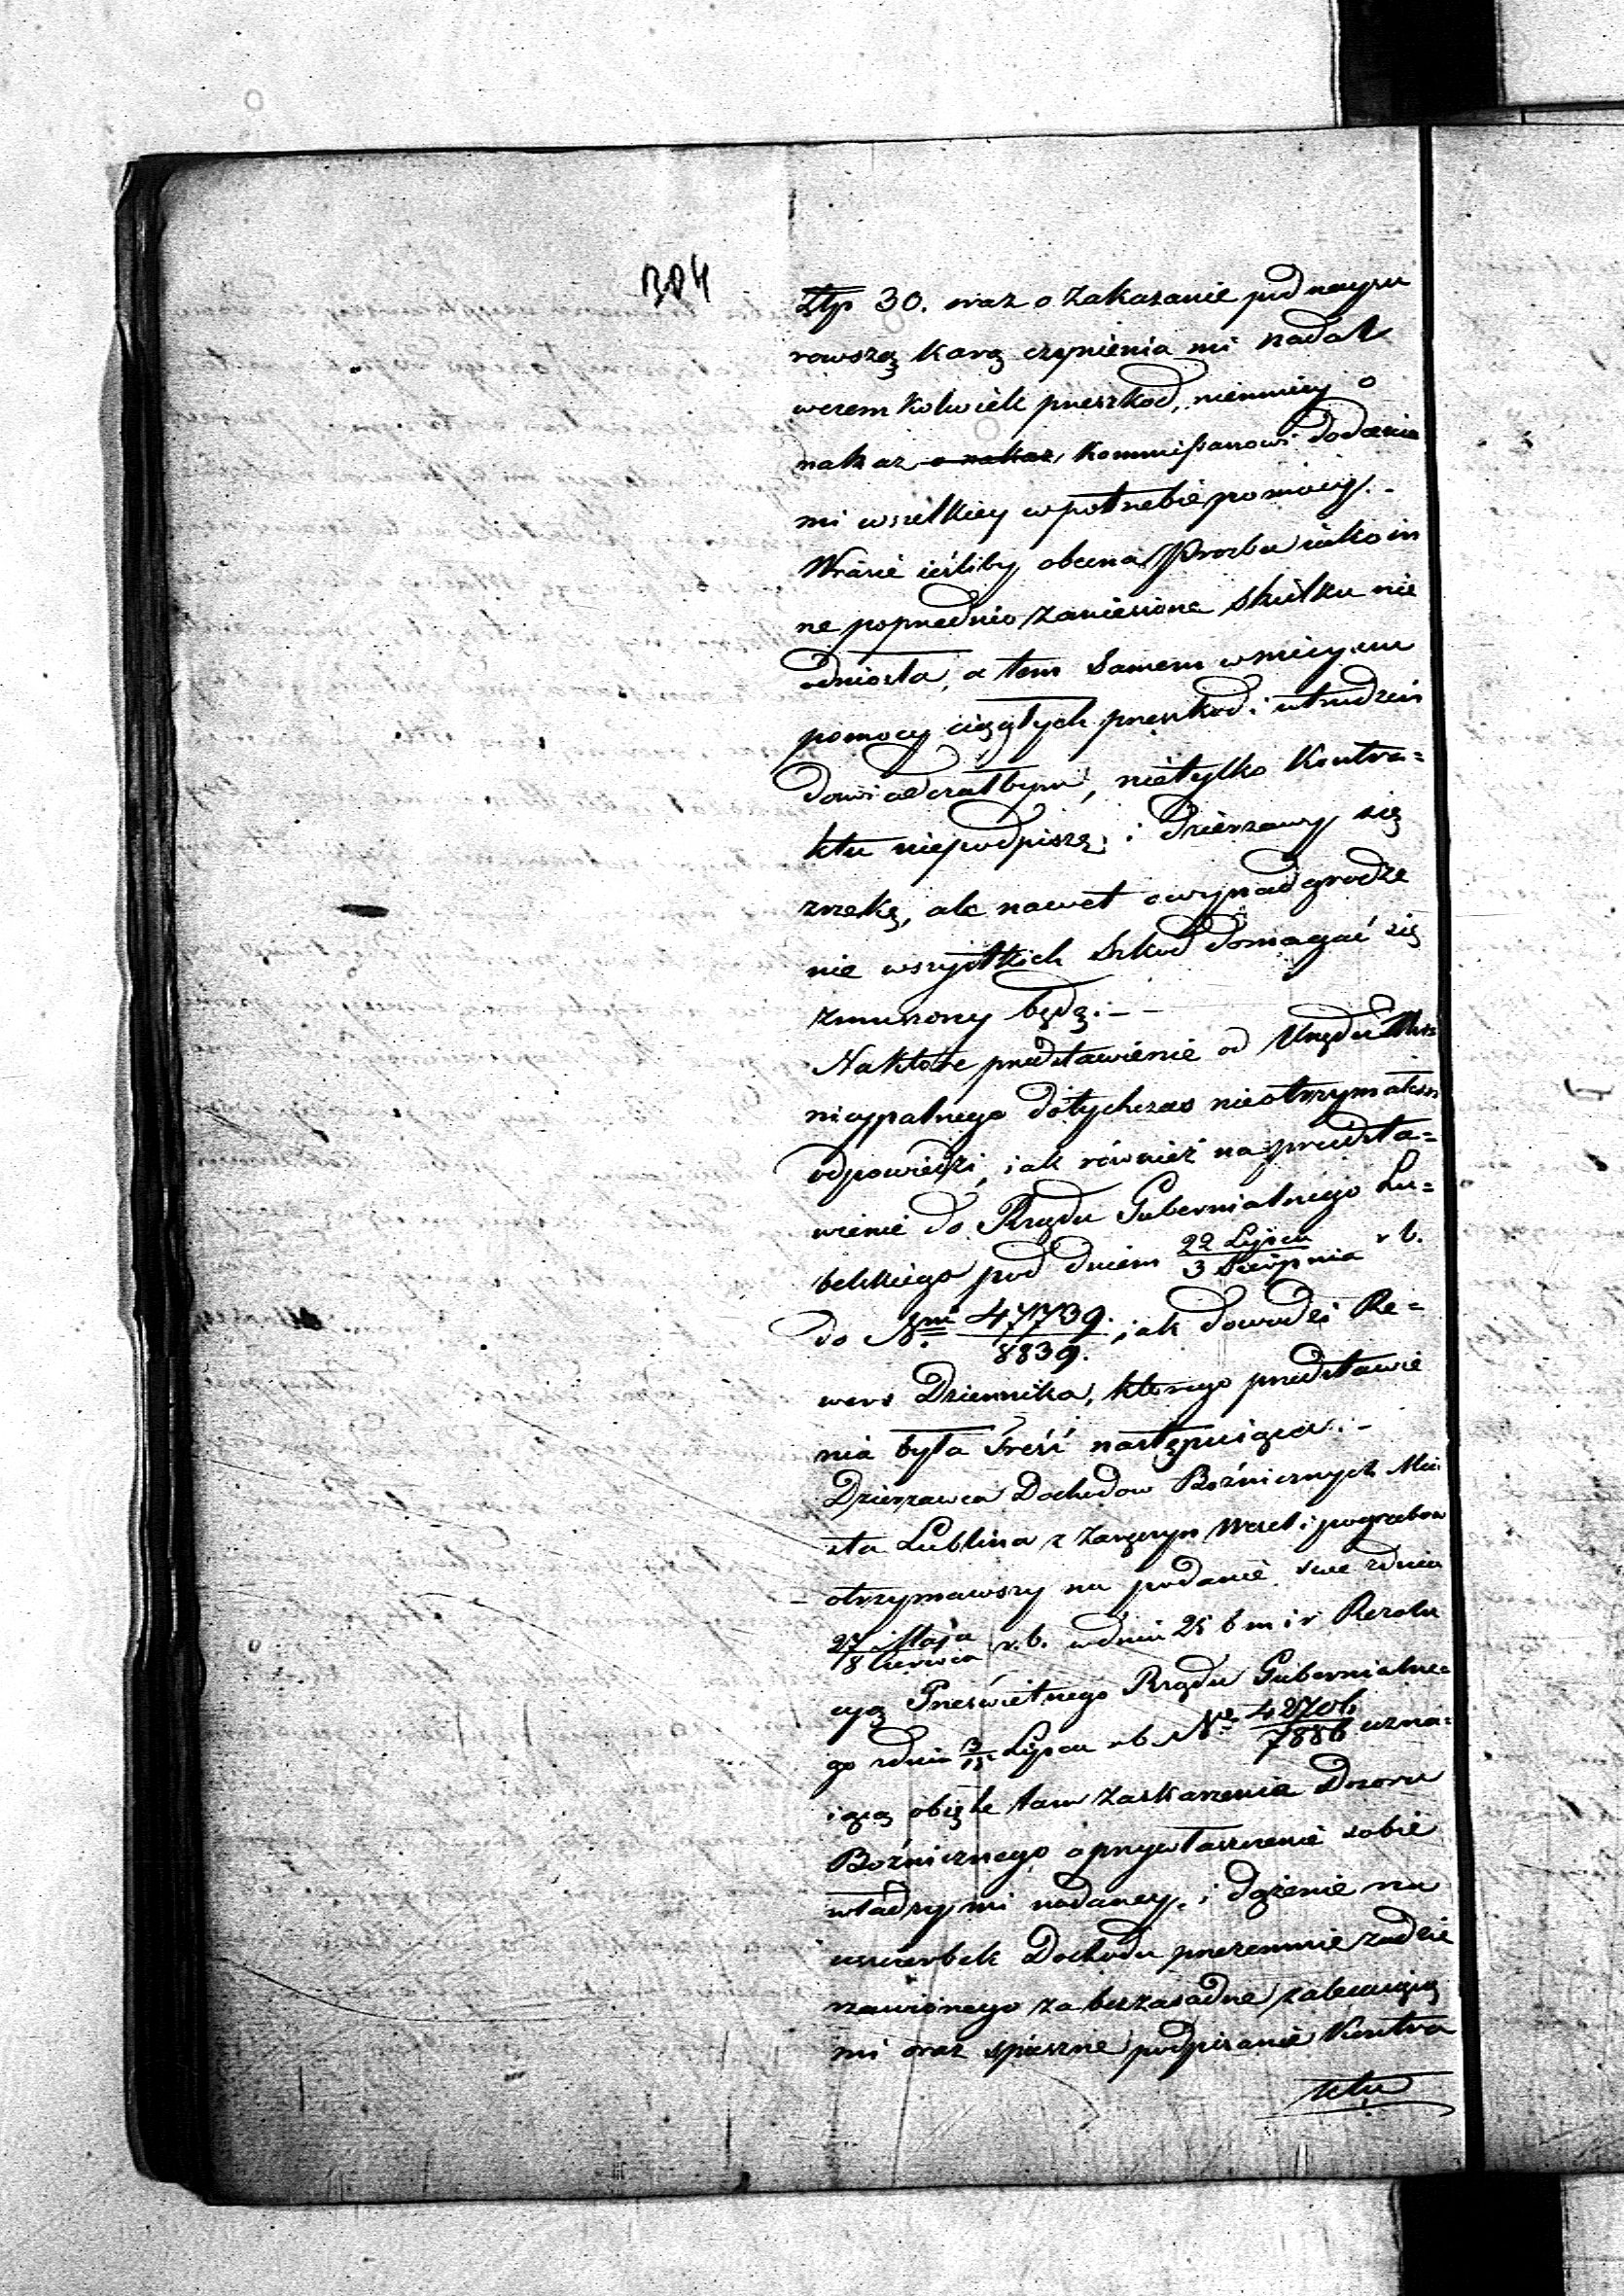 304
Złp 30. oraz o zakazanie pod naysu
rowszą karą czynienia mi nadal
wczem kolwiek przeszkod, niemniey o
nakaz o nakaz Kommissarzowi dodania
mi wszelkiey w potrzebie pomocy. –
Wrazie ieśliby obecna Prozba iako in
ne poprzednio zaniesione skutku nie
odniosła, a tem samem w mieyscu
pomocy ciągłych przeszkod i utrudzeń
doswiadczałbym, nietylko Kontra=
ktu niepodpiszę, i dzierzawy się
zrzekę, ale nawet o wynadgrodze
nie wszystkich szkod domagać się
zmuszony będę. – –
Naktóre przedstawienie od Urzędu Mu
nicypalnego dotychczas nieotrzymałem
odpowiedzi, iak również na przedsta=
wienie do Rządu Gubernialnego Lu=
belskiego pod dniem 22 Lipca / 3 Sierpnia r b.
do Nm 47739. / 8839. iak dowodzi Re=
wers Dziennika, którego przedstawie
nia była treść następuiąca. –
Dzierzawca Dochodow Bożnicznych Mia
sta Lublina z zaręczyn Wesel i pogrzebow
– otrzymawszy na podanie swe z dnia
27 Maja / 8 Czerwca r. b. w dniu 25 b m i r Rezolu
cyą Prześwietnego Rządu Gubernialne=
go z dnia 3/15 Lipca r b No 42706 / 7886 uzna=
iącą obięte tam zaskarzenia Dozoru
Bożnicznego o przywłaszczenie sobie
władzy mi nadaney, i dążenie na
uszczerbek Dochodu przezemnie zadzie
rzawionego za bezzasadne zalecaiącą
mi oraz spieszne podpisanie Kontra
ktu